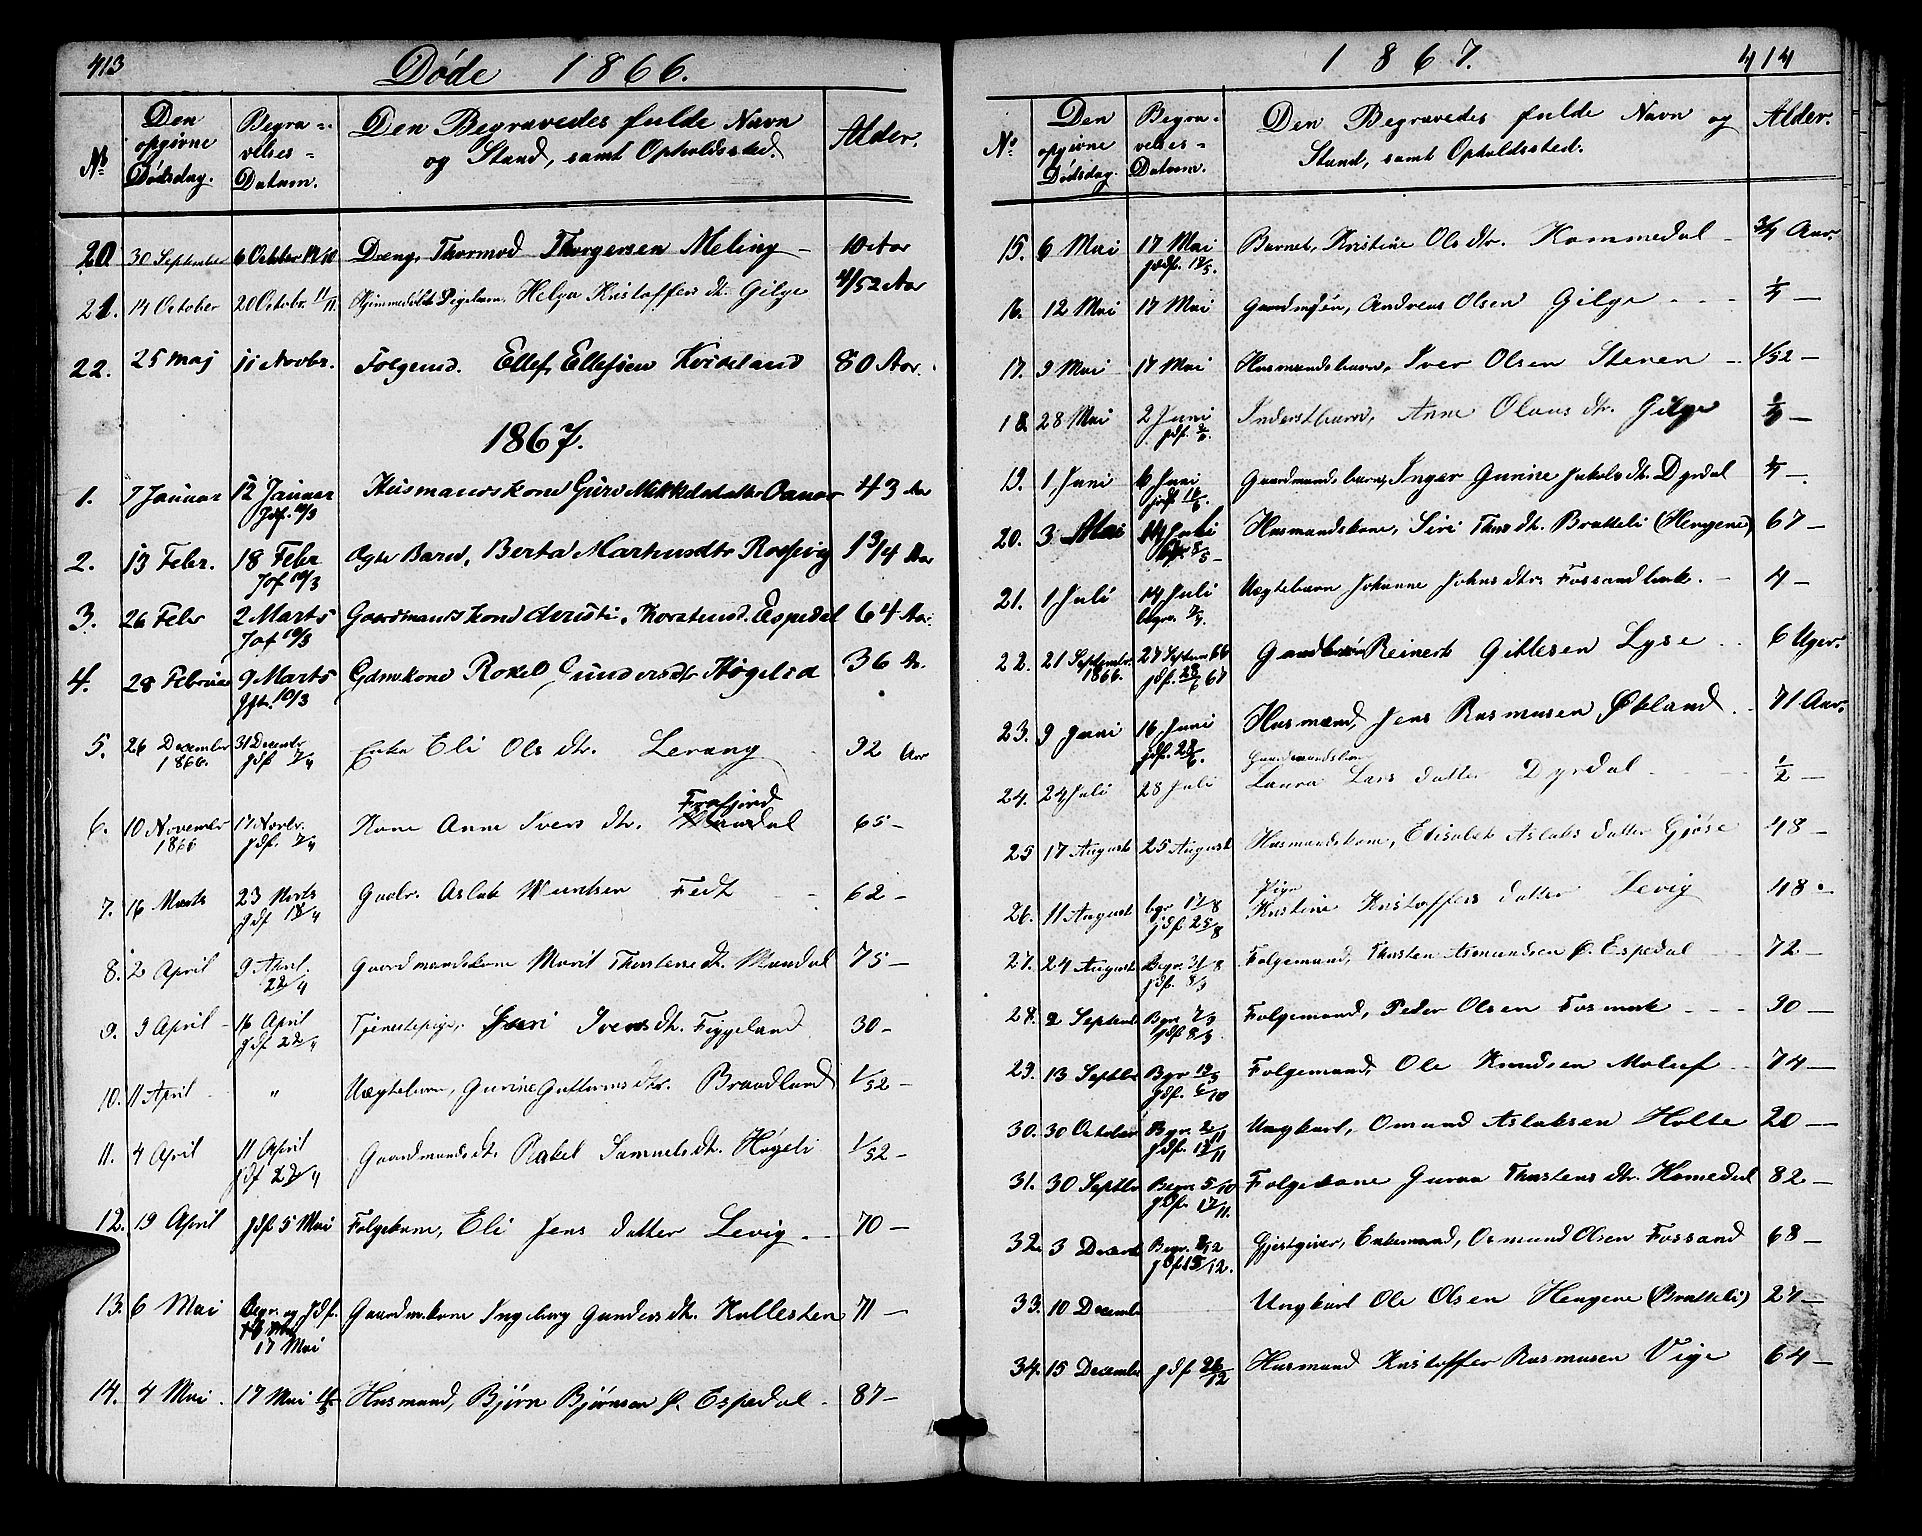 413
Døde 1866.
No Den opgivne Dødsdag. Begravelses-Datum. Den Begravedes fulde Navn og Stand, samt Opholdssted. Alder.
20 30 September 6 October Dreng, Thormod Thorgersen Meling - 10 Aar
21. 14 October 20 Octobr. Helga Kristoffers dtr. Gilje 4/52 Aar
22. 25 Maj 11 Novbr. Følgemd. Ellef Ellefsen Kvideland 80 Aar.
1867.
1. 7 Januar 12 Januar Jdf. 10/3 Husmandskone Guro Mikkelsdatter Oanes 43 Aar
2. 13 Febr. 18 Febr Jof 10/3 Ægte Barn, Berta Martinsdtr Rossevig 1 3/4 Aar
3. 26 Febr 2 Marts Jof 10/3 Gaardmandskone Christi. Espedal 64 Aar.
4. 28 Februar 9 Marts 10/3 Gdmkone Rakel Gundersdtr Høgelid 36 Ar.
5. 26 December 1866. 31 Decembr jdf 7/4 Enke Eli Ols dtr. Levang 92 Aar
6. 10 November 1866 17 Novbr. jdf. 7/4 Kone Anne Ivers dtr. Frafjord 65 -
7. 16 Marts 23 Marts jdf 18/4 Aslak Fedt - 62 -
8. 2 April 9 April. 22/4 Gaardmandskone Marit Thorstens dtr. Mandal 75 -
9. 9 April - 16 April jdf 22/4 Tjenestepige, Ivers dtr. Figgeland 30 -
10. 11 April - " Uægtebarn, Gurine Guttorms dtr. Brandland 1/52 -
11. 4 April 11 April jdf 22/4 Gaardmands dtr. Rakel Samuels dtr. Høgeli 1/52 -
12. 19 April jdf 5 Mai Følgekone, Eli Jens datter Levig - 70 -
13. 6 Mai Begr. og jdf. 17 Mai Gaardm.kone Ingeborg Gunders dtr. Hallesten 71 -
14. 4 Mai. 17 Mai Husmand, Bjørn Bjørnsen Ø. Espedal - 87 -
1867. 414
No. Den opgivne Dødsdag. Begravelses-Datum. Den Begravedes fulde Navn og Stand, samt Opholdssted. Alder.
15. 6 Mai 17 Mai Barnet, Kristine Ols dtr. Hommedal - 3/4 Aar.
16. 12 Mai 17 Mai Andreas Olsen Gilje - - -
17. 9 Mai 17 Mai Husmandsbarn, Iver Olsen Stenen - 1/52 -
18 28 Mai 2 Juni Inderstbarn, Anne Olaus dtr. Gilje
19. 1 Juni 6 Juni Gaardmandsbarn, Inger Gurine Jakobs dtr. Dyrdal
20. 3 Mai Husmandskone, Siri Thors dtr. Bratteli (Hengene) 67 -
21. 1 Juli 14 Juli Uægtebarn Johanne Johns dtr. Fossandbrek. - 4 -
22. 21 September 1866. 27 Septem 66 jdf. 23/6 67 Reinert Gitlesen Lyse - 6 Uger.
23. 9 Juni 16 Juni jdf. 23/6. Husmand, Jens Rasmusen Økland - 71 Aar.
24. 24 Juli 28 Juli Gaardmandsbarn Laura Lars datter Dyrdal - 1/2 -
25 17 August 25 August Husmandskone, Elisabet Aslaks datter Gjøse 48 -
26. 11 August bgr 17/8 jdf 25/8 Pige Kristine Kristoffers datter Levig 48 -
27. 24 August Begr. 31/8 jdf. 8/9 Følgemand, Thorsten Asmundsen Ø. Espedal - 72 -
28. 2 Septembr Bgr 7/9 jdf 8/9 Følgemand, Peder Olsen Fosmark - - 90 -
29. 13 Septbr Bgr 19/9 jdf. 6/10 Følgemand, Ole Knudsen Molauf - 74 -
30. 30 October Bgr. 2/11 jdf. 17/11 Ungkarl, Omund Aslaksen Holte 20 -
31. 30 Septbr Begr 5/10 jdf. 17/11. Følgekone Guroa Thorstens dtr. Homedal 82 -
32. 3 Decembr Begr. 8/12 jdf 15/12. Gjestgiver, Enkemand, Osmund Olsen Fossand 68 -
33. 10 Decembr Ungkarl Ole Olsen Hengene (Bratteli) 27 -
34. 15 December jdf 26/12 Husmand Kristoffer Rasmusen Vige 64 -